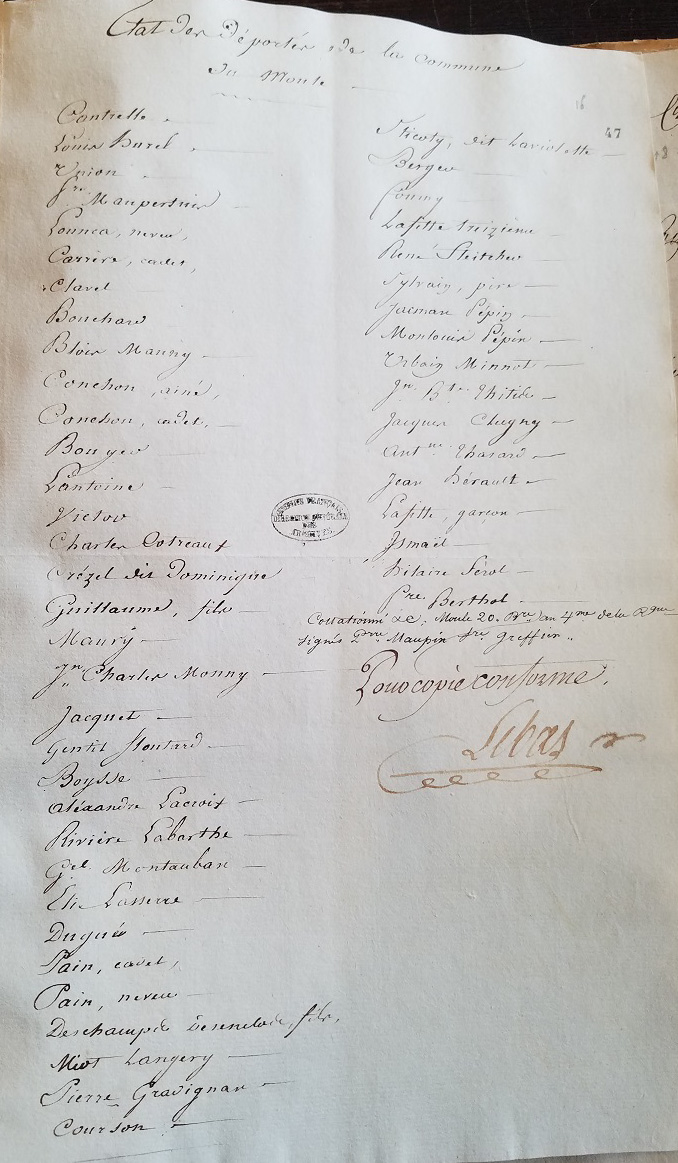 Etat des Déportés de la Commune
du Moule
Contrelle
Louis Hurel
Union
Jn. Maupertuis
Lounca, neveu,
Carrère, cadet,
Clavel
Bouchard
Blois Mauny
Conchon, ainé,
Conchon, cadet,
Bouyer
Lantoine
Victor
Charles Cotreaux
Crézel dit Dominique
Guillaume, fils
Maury
Jn. Charles Monny
Jacquet
Gentil
Boysse
Aléxandre Lacroix
Rivière Labarthe
Gel. Montauban
Elie Lasserre
Dugué
Pain, cadet,
Pain, neveu
Deschamps fils,
Miot Langery
Pierre Gravignan
Courson
16
47
Nicoty, dit Laviolette
Berger
Coumy
Lafitte treizième
René
Sylvain, père
Jacman Pépin
Monlouis Pépin
Urbain Minnot
Jn. Bte.
Jacques Clugny
Antne. Chasard
Jean Hérault
Lafitte, garçon
Ismaël
Hilaire Férol
Pre. Berthol
Collationné &c. Moule 20. Bre. an 4me de la Rque
signés Maupin Greffier
Pour copie conforme.
Lebas
COLONIES FRANÇAISES
ARCHIVES